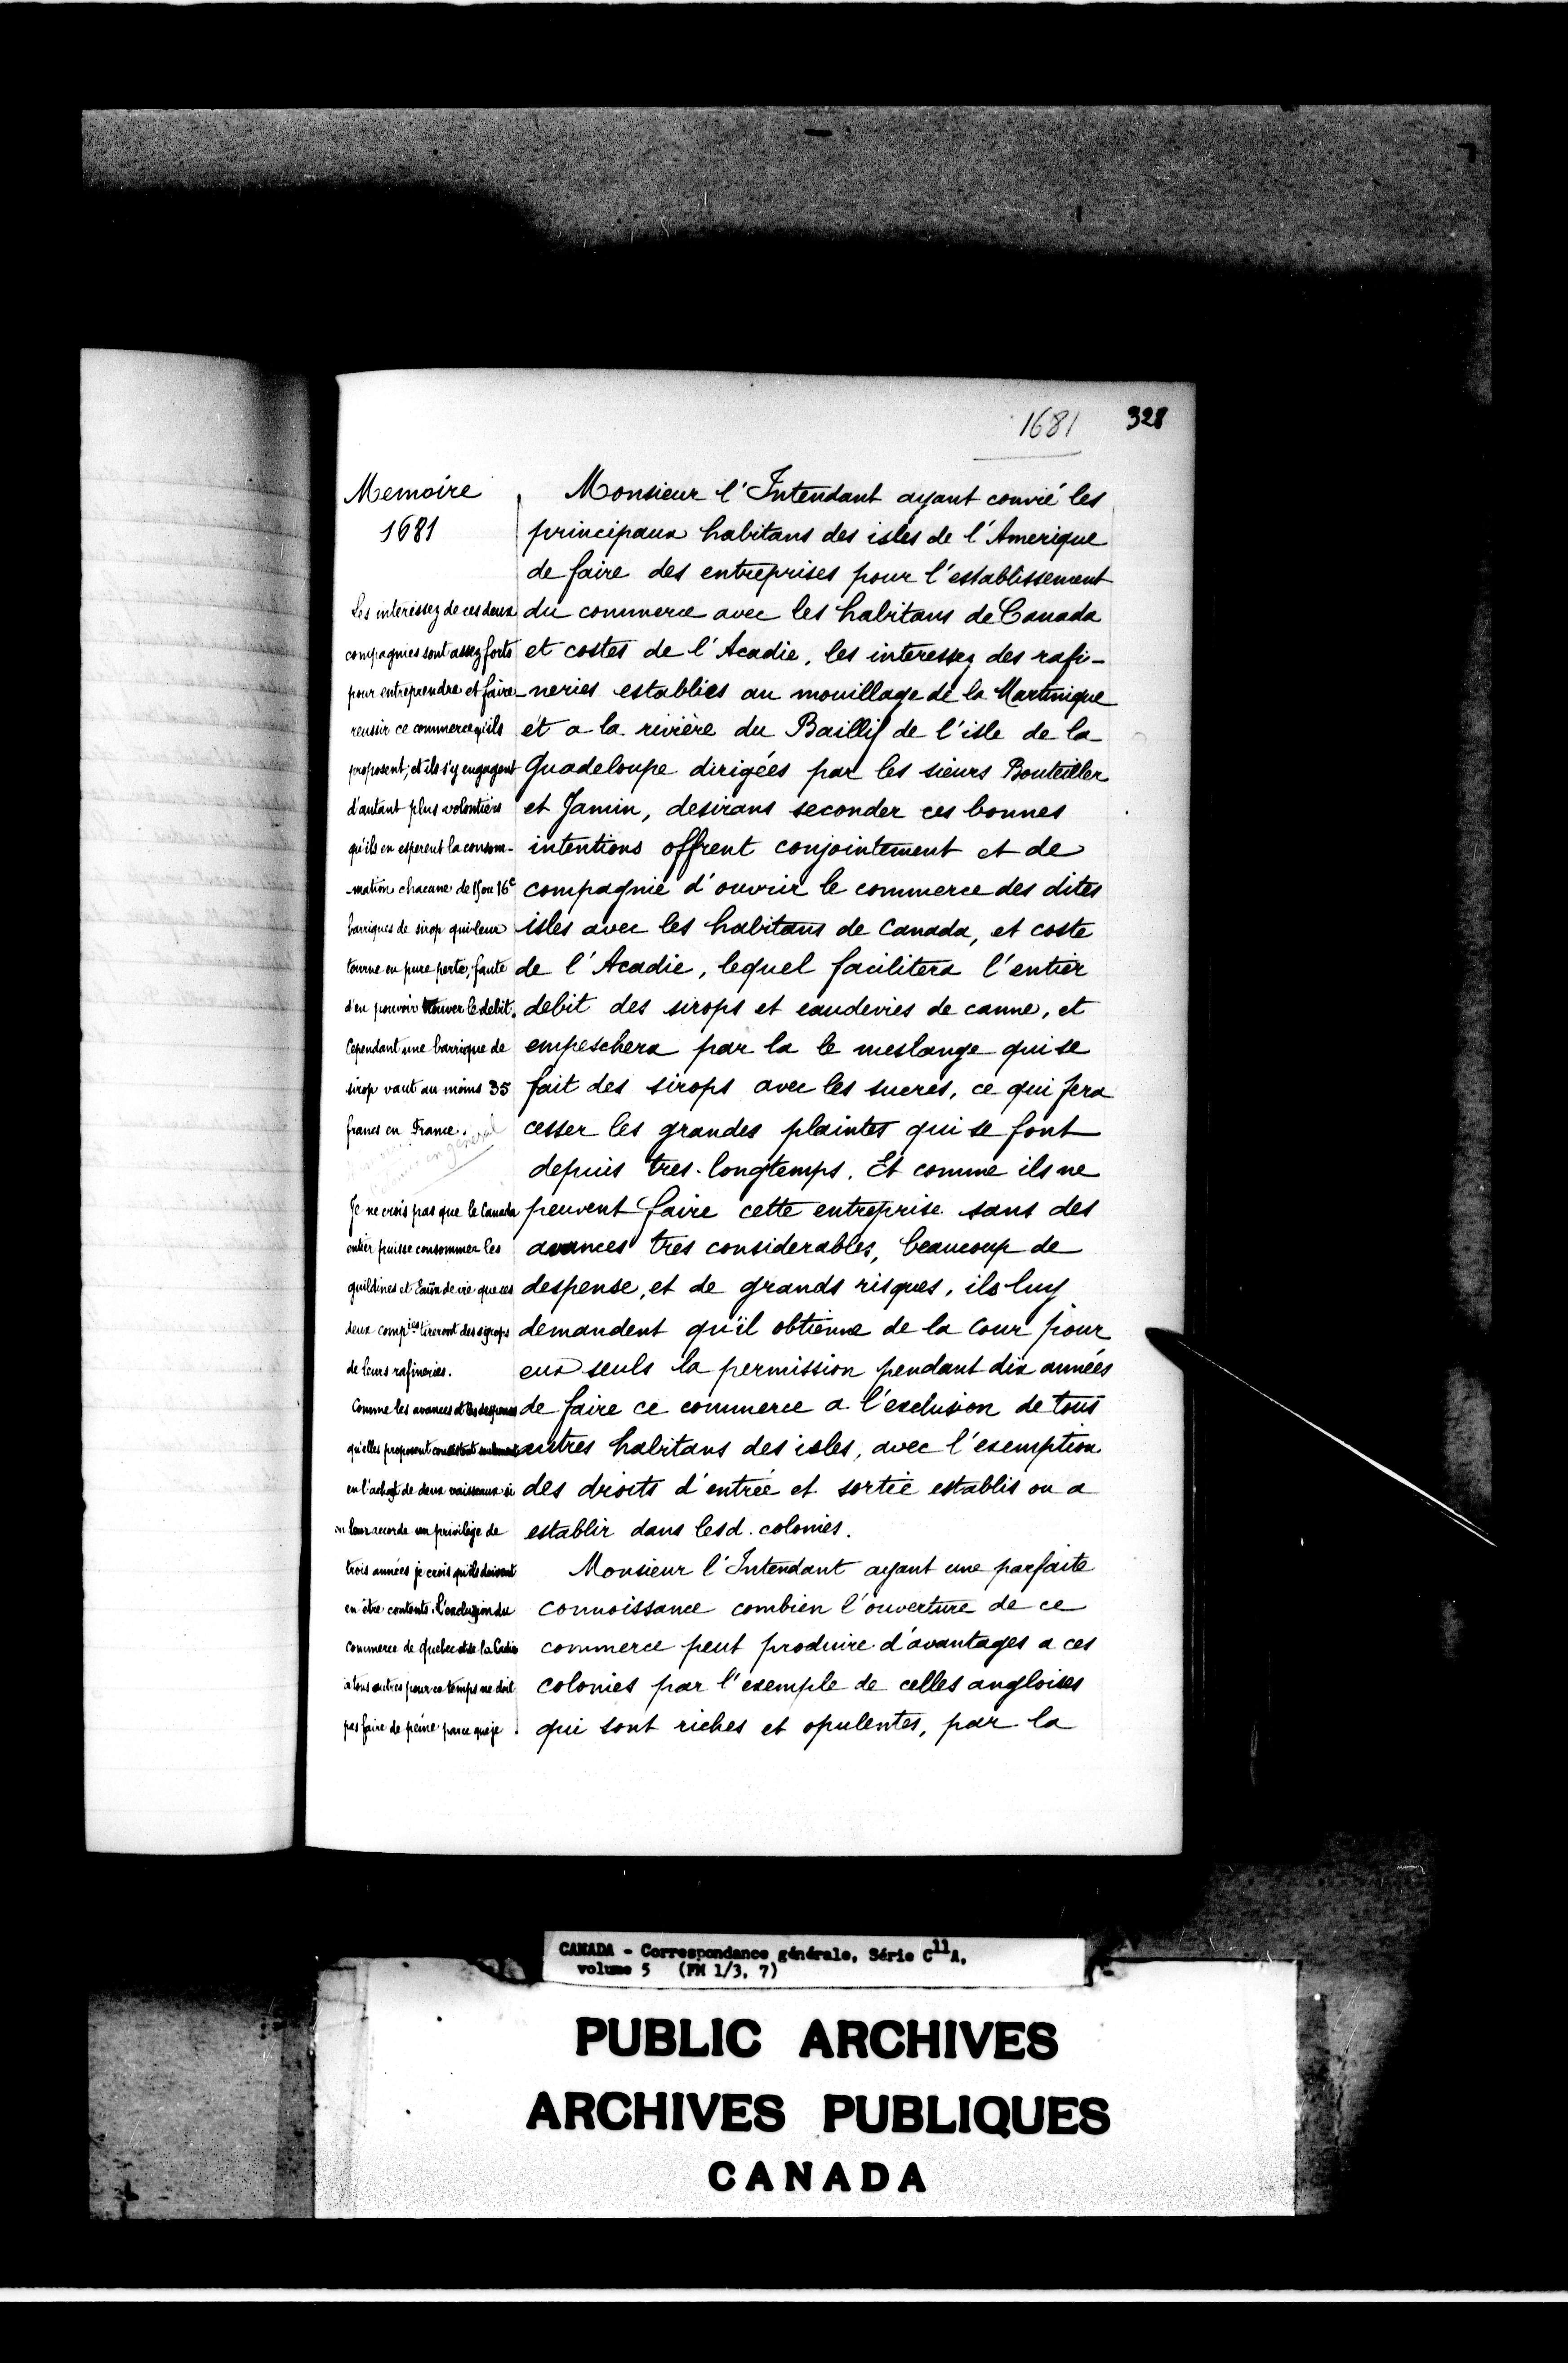 1681 328
Memoire
1681
Les interissez de ces deux
compagnies sont assez forts
pour entreprendre et faire
reussir ce commerce qu'ils
proposent; et ils s'y engagent
d'autant plus volontiers
qu'ils en esperent la consom-
-mation chacune de 15 ou 16c
barriques de sirop qui leur
tourne en pure perte, faute
d'en pouvoir trouver le debit.
Cependant une barrique de
sirop vaut au moins 35
francs en France.
en general
Je ne crois pas que le Canada
entier puisse consommer les
guildines et Eaux de vie que ces
deux compies tireront des sirops
de leurs rafineries.
Comme les avances et les despenses
qu'elles proposent consistent seulement
en l'achapt de deux vaisseaux si
on leur accorde un privilège de
trois années je crois qu'ils doivent
en être contents. L'exclusion du
commerce de Quebec et de la Cadie
à tous autres pour ce temps ne doit
pas faire de peine parce que je
Monsieur l'Intendant ayant convié les
principaux habitans des isles de l'Amerique
de faire des entreprises pour l'establissement
du commerce avec les habitans de Canada
et costes de l'Acadie, les interessez des rafi-
-neries establies au mouillage de la Martinique
et a la rivière du Baillif de l'isle de la
Guadeloupe dirigées par les sieurs Bouteiller
et Jamin, desirans seconder ces bonnes
intentions offrent conjointement et de
compagnie d'ouvrir le commerce des dites
isles avec les habitans de Canada, et coste
de l'Acadie, lequel facilitera l'entier
debit des sirops et eaudevies de canne, et
empeschera par la le meslange qui se
fait des sirops avec les sucres, ce qui fera
cesser les grandes plaintes qui se font
depuis tres-longtemps. Et comme ils ne
peuvent faire cette entreprise sans des
avances tres considerables, beaucoup de
despense, et de grands risques, ils luy
demandent qu'il obtienne de la Cour pour
eux seuls la permission pendant dix années
de faire ce commerce a l'exclusion de tous
autres habitans des isles, avec l'exemption
des droits d'entrée et sortie establis ou a
establir dans lesd. colonies.
Monsieur l'Intendant ayant une parfaite
connoissance combien l'ouverture de ce
commerce peut produire d'avantages a ces
colonies par l'exemple de celles angloises
qui sont riches et opulentes, par la
CANADA - Correspondance générale, Série C11A,
volume 5 (FM 1/3, 7)
PUBLIC ARCHIVES
ARCHIVES PUBLIQUES
CANADA